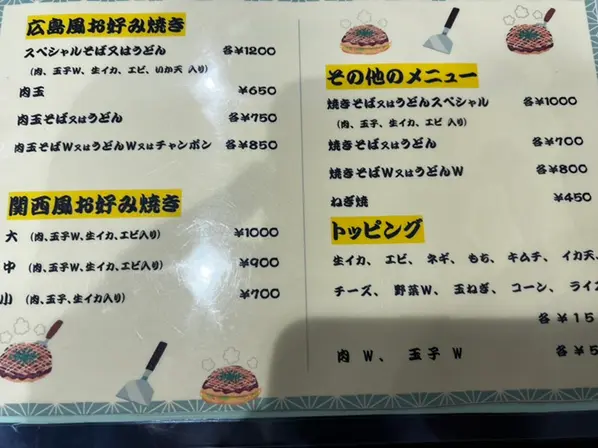 広島風お好み焼き
スペシャルそば又はうどん 各¥1200
(肉、玉子W、生イカ、エビ、いか天 入り)
肉玉 ¥650
肉玉そば又はうどん 各¥750
肉玉そばW又はうどんW又はチャンポン 各¥850
関西風お好み焼き
大 (肉、玉子W、生イカ、エビ入り) ¥1000
中 (肉、玉子W、生イカ、エビ入り) ¥900
小 (肉、玉子、生イカ入り) ¥700
その他のメニュー
焼きそば又はうどんスペシャル 各¥1000
(肉、玉子、生イカ、エビ 入り)
焼きそば又はうどん 各¥700
焼きそばW又はうどんW 各¥800
ねぎ焼 ¥450
トッピング
生イカ、 エビ、 ネギ、 もち、 キムチ、 イカ天、
チーズ、 野菜W、 玉ねぎ、 コーン、 ライ
各 ¥15
肉 W、 玉子 W 各 ¥5